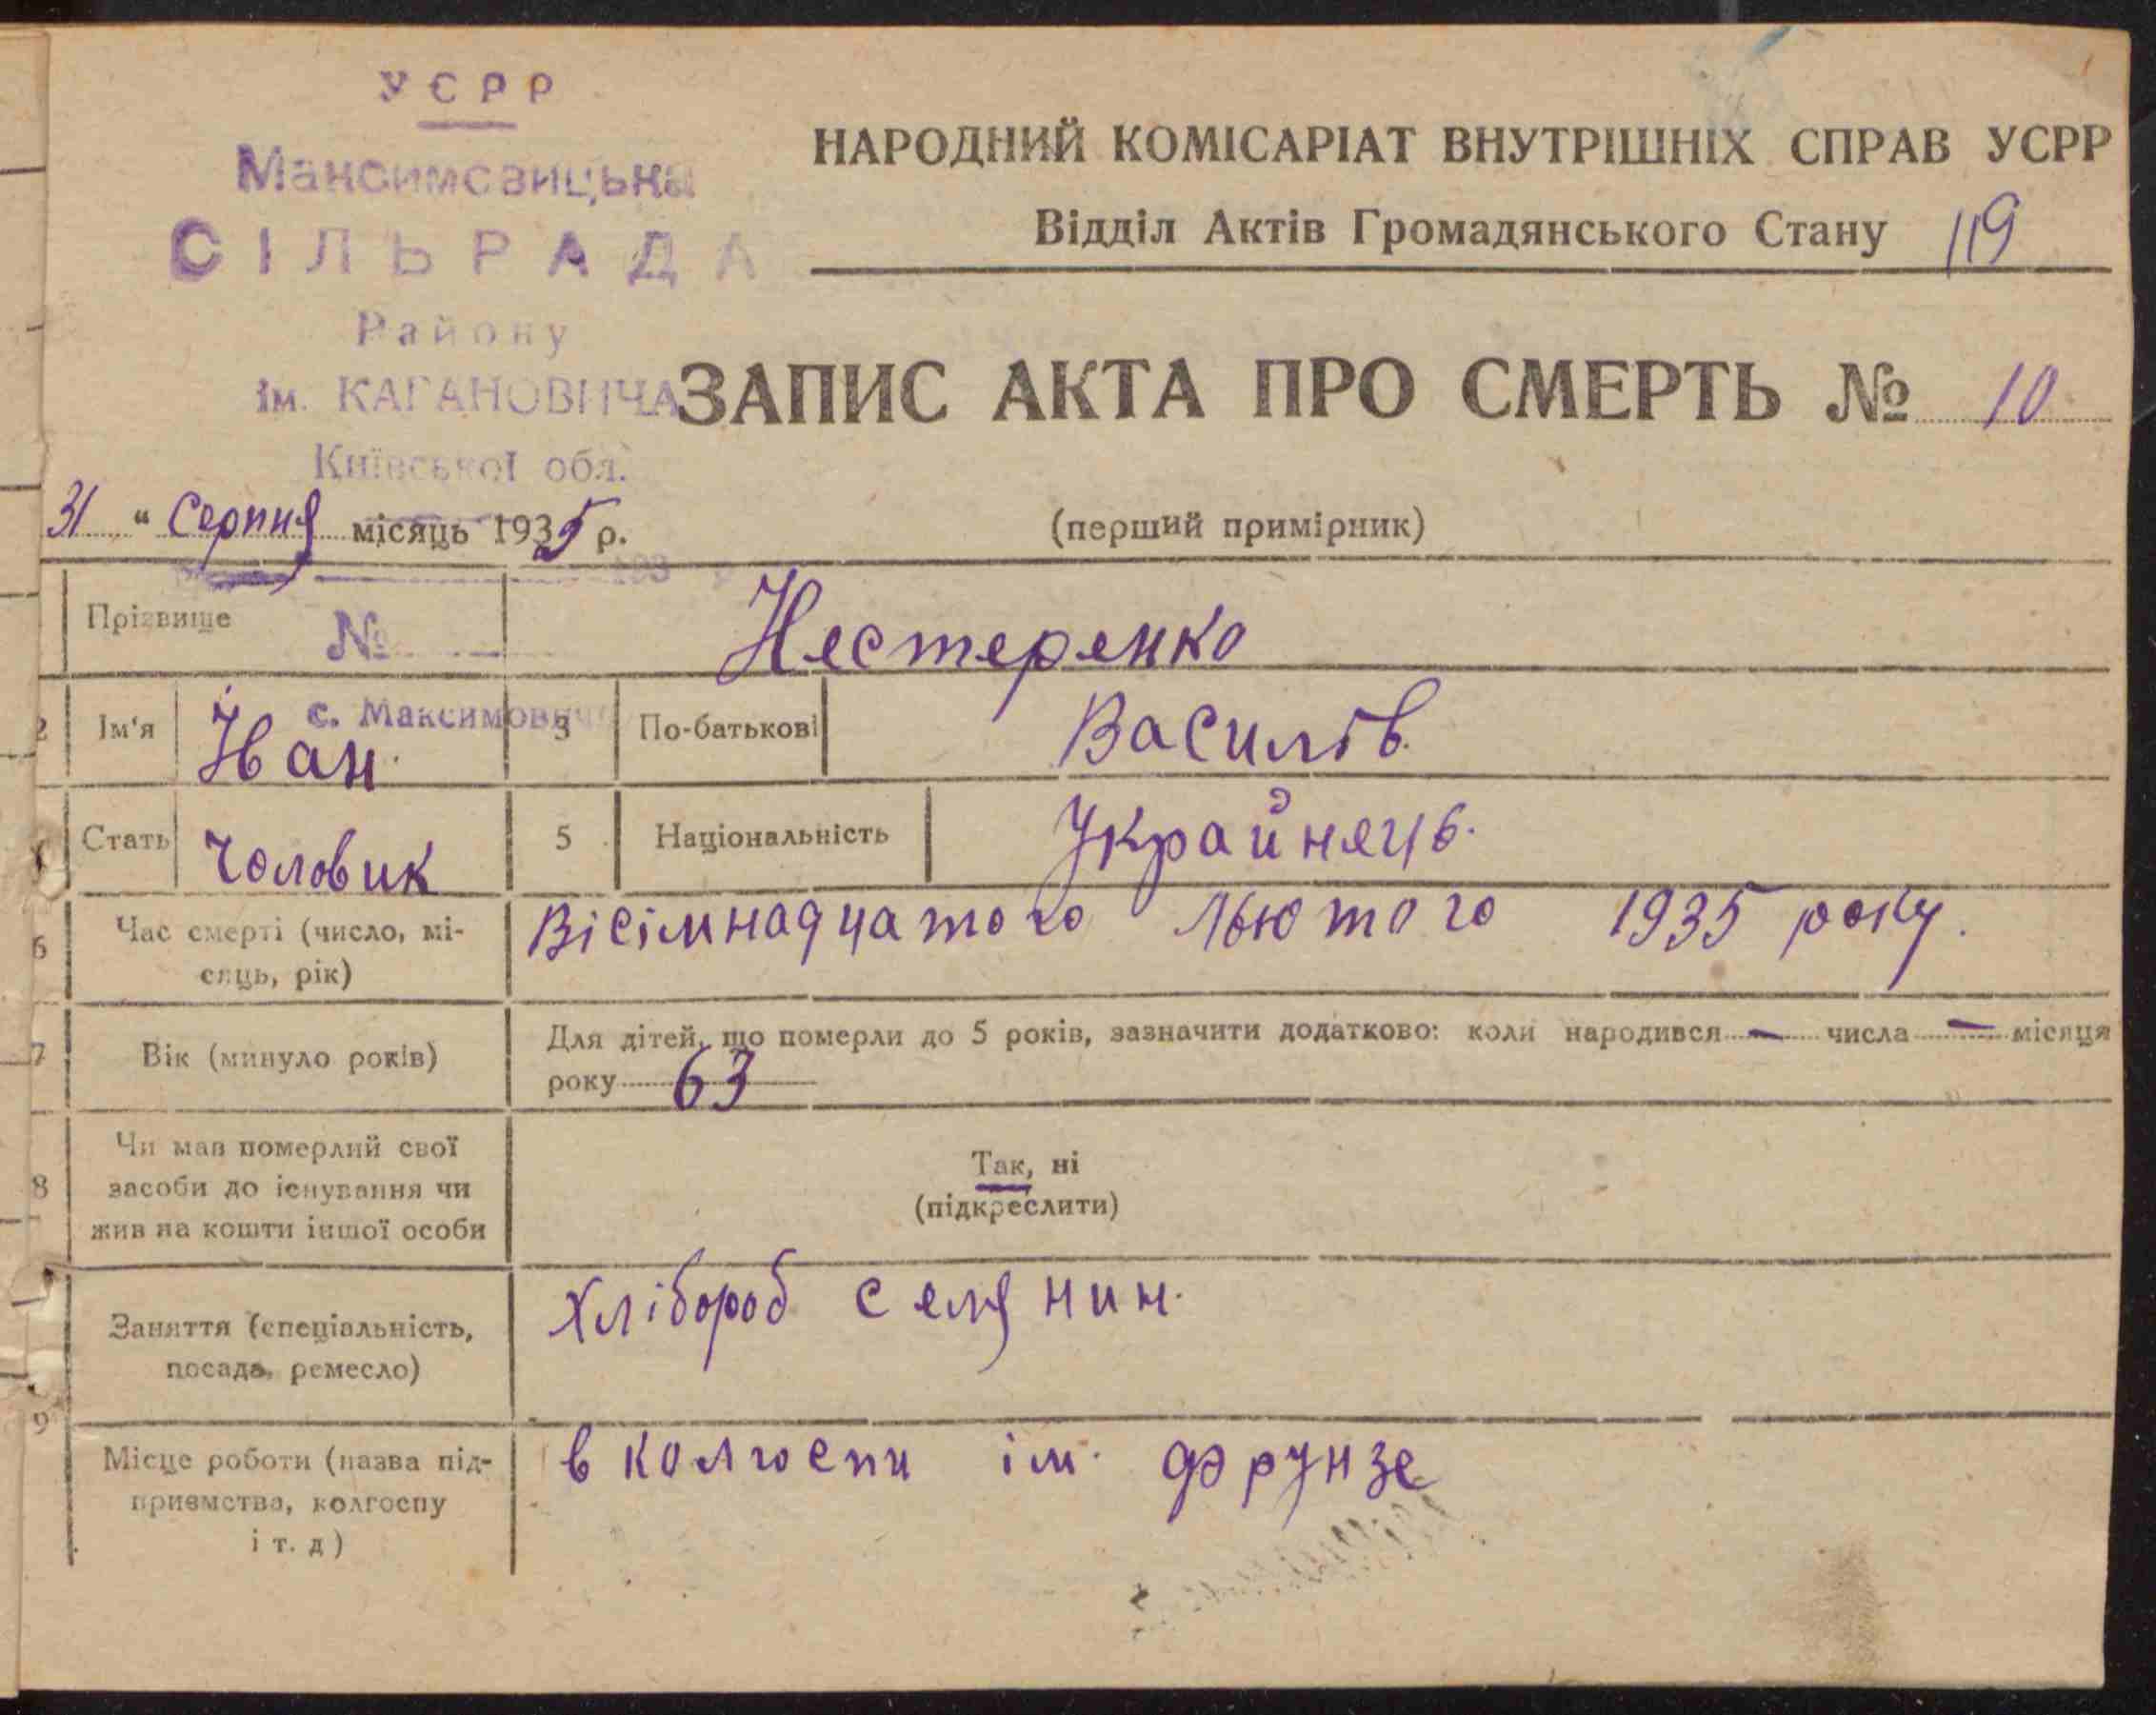 УЄРР
Максимовицька
СІЛЬРАДА
Району
ім. КАГАНОВИЧА
Київської обл.
НАРОДНИЙ КОМІСАРІАТ ВНУТРІШНІХ СПРАВ УСРР
Відділ Актів Громадянського Стану 119
ЗАПИС АКТА ПРО СМЕРТЬ № 10
31 " Серпня місяць 1935 р.
(перший примірник)
193
Прізвище
№
Нестеренко
2 Ім'я Іван 3 По-батькові Василів
с. Максимович
Стать Чоловик 5 Національність Українець.
6 Час смерті (число, мі-
сяць, рік)
Вісімнадцатого Лютого 1935 року.
7 Вік (минуло років)
Для дітей, що померли до 5 років, зазначити додатково: коли народився — числа — місяця
року 63
8 Чи мав померлий свої
засоби до існування чи
жив на кошти іншої особи
Так, ні
(підкреслити)
Заняття (спеціальність,
посада, ремесло)
хлібороб селянин.
9
Місце роботи (назва під-
приємства, колгоспу
і т. д)
в колгоспи ім. Фрунзе